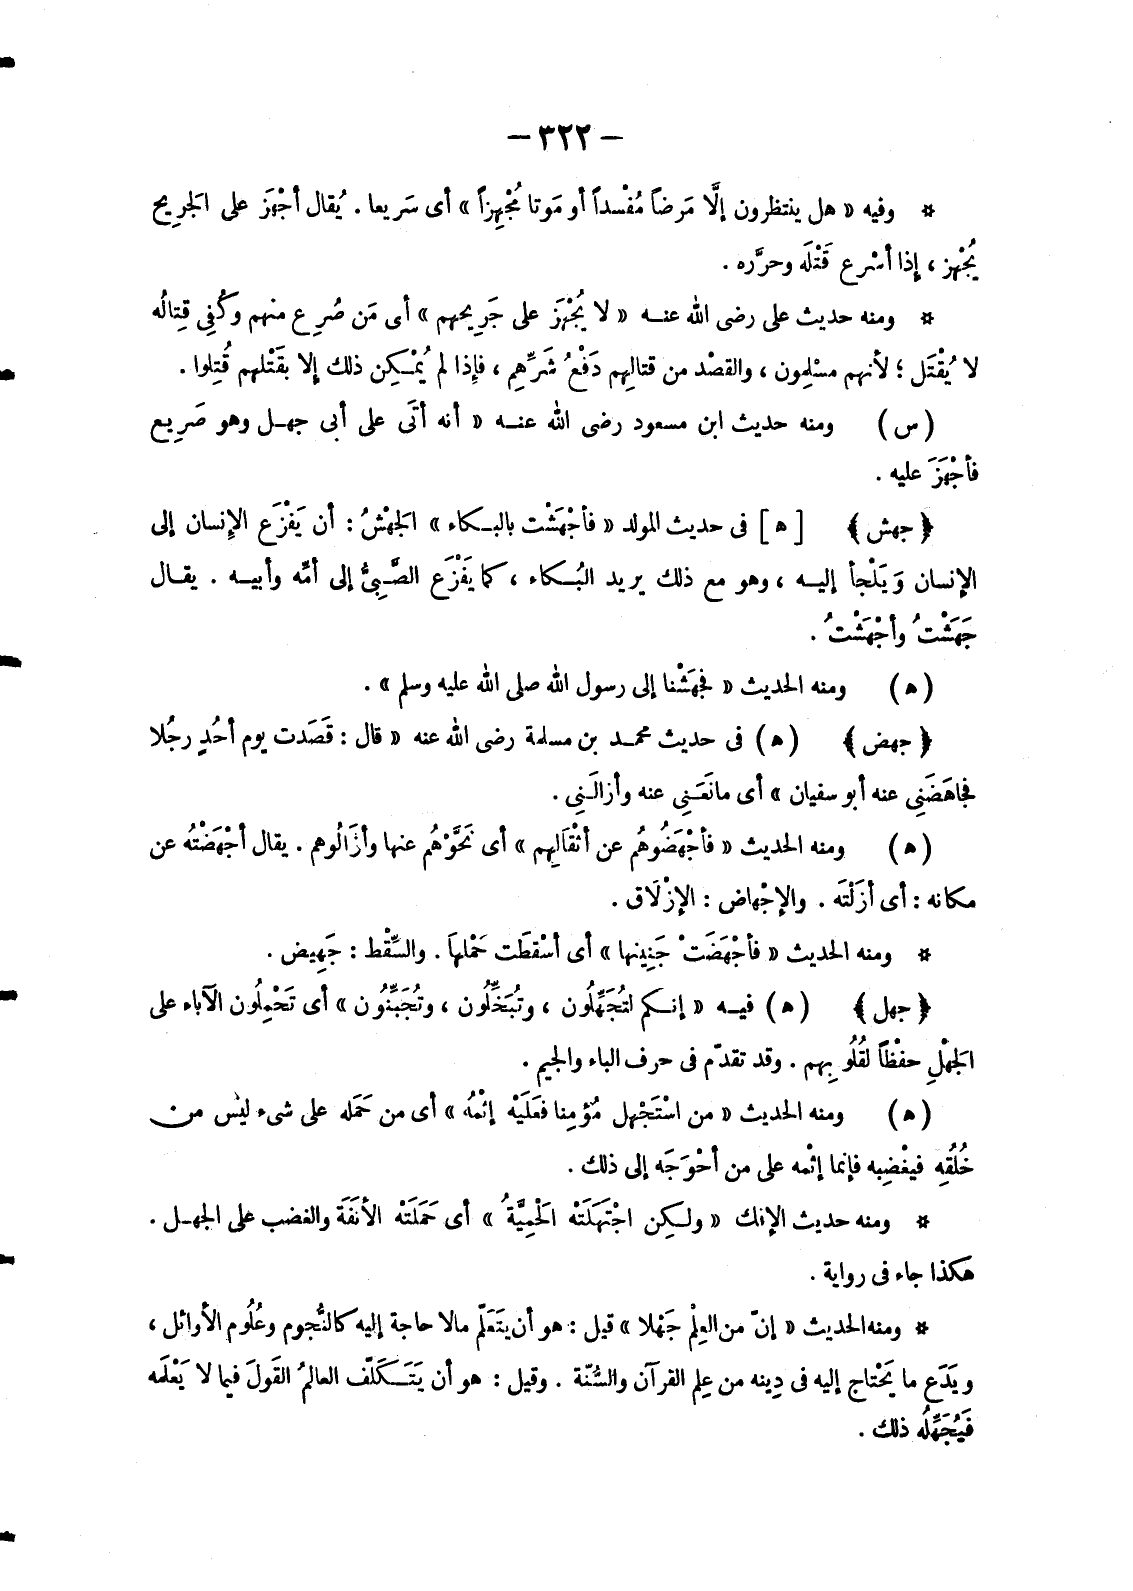 — ٣٢٢ —
* وفيه « هل ينتظرون إلَّا مَرضاً مُفْسداً أو مَوتا مُجْهِزاً » أى سَريعا . يُقال أجْهَز على الجَريح
يُجْهِز ، إذا أسْرع قَتْلَه وحرَّره .
* ومنه حديث على رضى الله عنه « لا يُجْهَز على جَريحهم » أى مَن صُرِع منهم وكُفِى قِتالُه
لا يُقْتَل ؛ لأنهم مسْلِمون ، والقصْد من قتالِهم دَفْعُ شَرِّهِم ، فإذا لم يُمْكِن ذلك إلا بقَتْلهم قُتِلوا .
( س ) ومنه حديث ابن مسعود رضى الله عنه « أنه أتَى على أبى جهل وهو صَرِيع
فأجْهَزَ عليه .
﴿ جهش ﴾ [ ﻫ ] فى حديث المولد « فأجْهَشْت بالبكاء » الجَهْشُ : أن يَفْزَع الإنسان إلى
الإنسان وَيَلْجأ إليه ، وهو مع ذلك يريد البُكاء ، كما يَفْزَع الصَّبِىُّ إلى أمِّه وأبيه . يقال
جَهَشْتُ وأجْهَشْتُ .
( ﻫ ) ومنه الحديث « فجَهَشْنا إلى رسول الله صلى الله عليه وسلم » .
﴿ جهض ﴾ ( ﻫ ) فى حديث محمد بن مسلمة رضى الله عنه « قال : قَصَدت يوم أحُدٍ رجُلا
فجاهَضَنِى عنه أبو سفيان » أى مانَعَنِى عنه وأزالَنِى .
( ﻫ ) ومنه الحديث « فأجْهَضُوهُم عن أثْقَالِهم » أى نَحَّوْهُم عنها وأزَالُوهم . يقال أجْهَضْتُه عن
مكانه : أى أزَلْتَه . والإجْهاض : الإزْلَاق .
* ومنه الحديث « فأجْهَضَتْ جَنِينها » أى أسْقطَت حَمْلهاَ . والسِّقْط : جَهِيض .
﴿ جهل ﴾ ( ﻫ ) فيه « إنكم لتُجَهِّلُون ، وتُبَخِّلُون ، وتُجَبِّنُون » أى تَحْمِلُون الآباء على
الجَهْلِ حفْظاً لقُلُوبِهم . وقد تقدّم فى حرف الباء والجيم .
( ﻫ ) ومنه الحديث « من اسْتَجْهل مُؤمِنا فعَلَيْه إثْمُه » أى من حَمَله على شىء ليْس من
خُلُقِه فيغْضِبه فإنما إثْمه على من أحْوَجَه إلى ذلك .
* ومنه حديث الإفك « ولكِن اجْتَهَلَتْه الحَمِيَّةُ » أى حَمَلَتْه الأنَفَة والغضب على الجهل .
هكذا جاء فى رواية .
* ومنه الحديث « إنّ من العِلْم جَهْلا » قيل : هو أن يتَعَلّم مالا حاجة إليه كالنُّجوم وعُلُوم الأوائل ،
ويَدَع ما يَحْتاج إليه فى دِينه من عِلم القرآن والسُّنّة . وقيل : هو أن يَتَكَلّف العالمُ القَولَ فيما لا يَعْلَمه
فَيُجَهِّلُه ذلك .